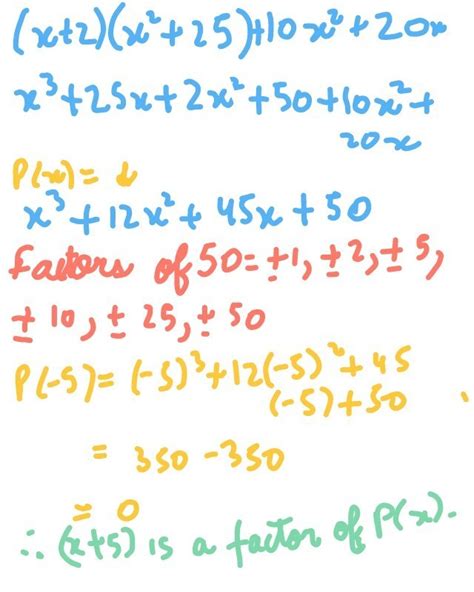 (x+2)(x²+25)+10x²+20x
x³+25x+2x²+50+10x²+
20x
P(x)= ↓
x³+12x²+45x+50
factors of 50=±1,±2,±5,
±10,±25,±50
P(-5)=(-5)³+12(-5)²+45
(-5)+50
= 350-350
= 0
∴ (x+5) is a factor of P(x).